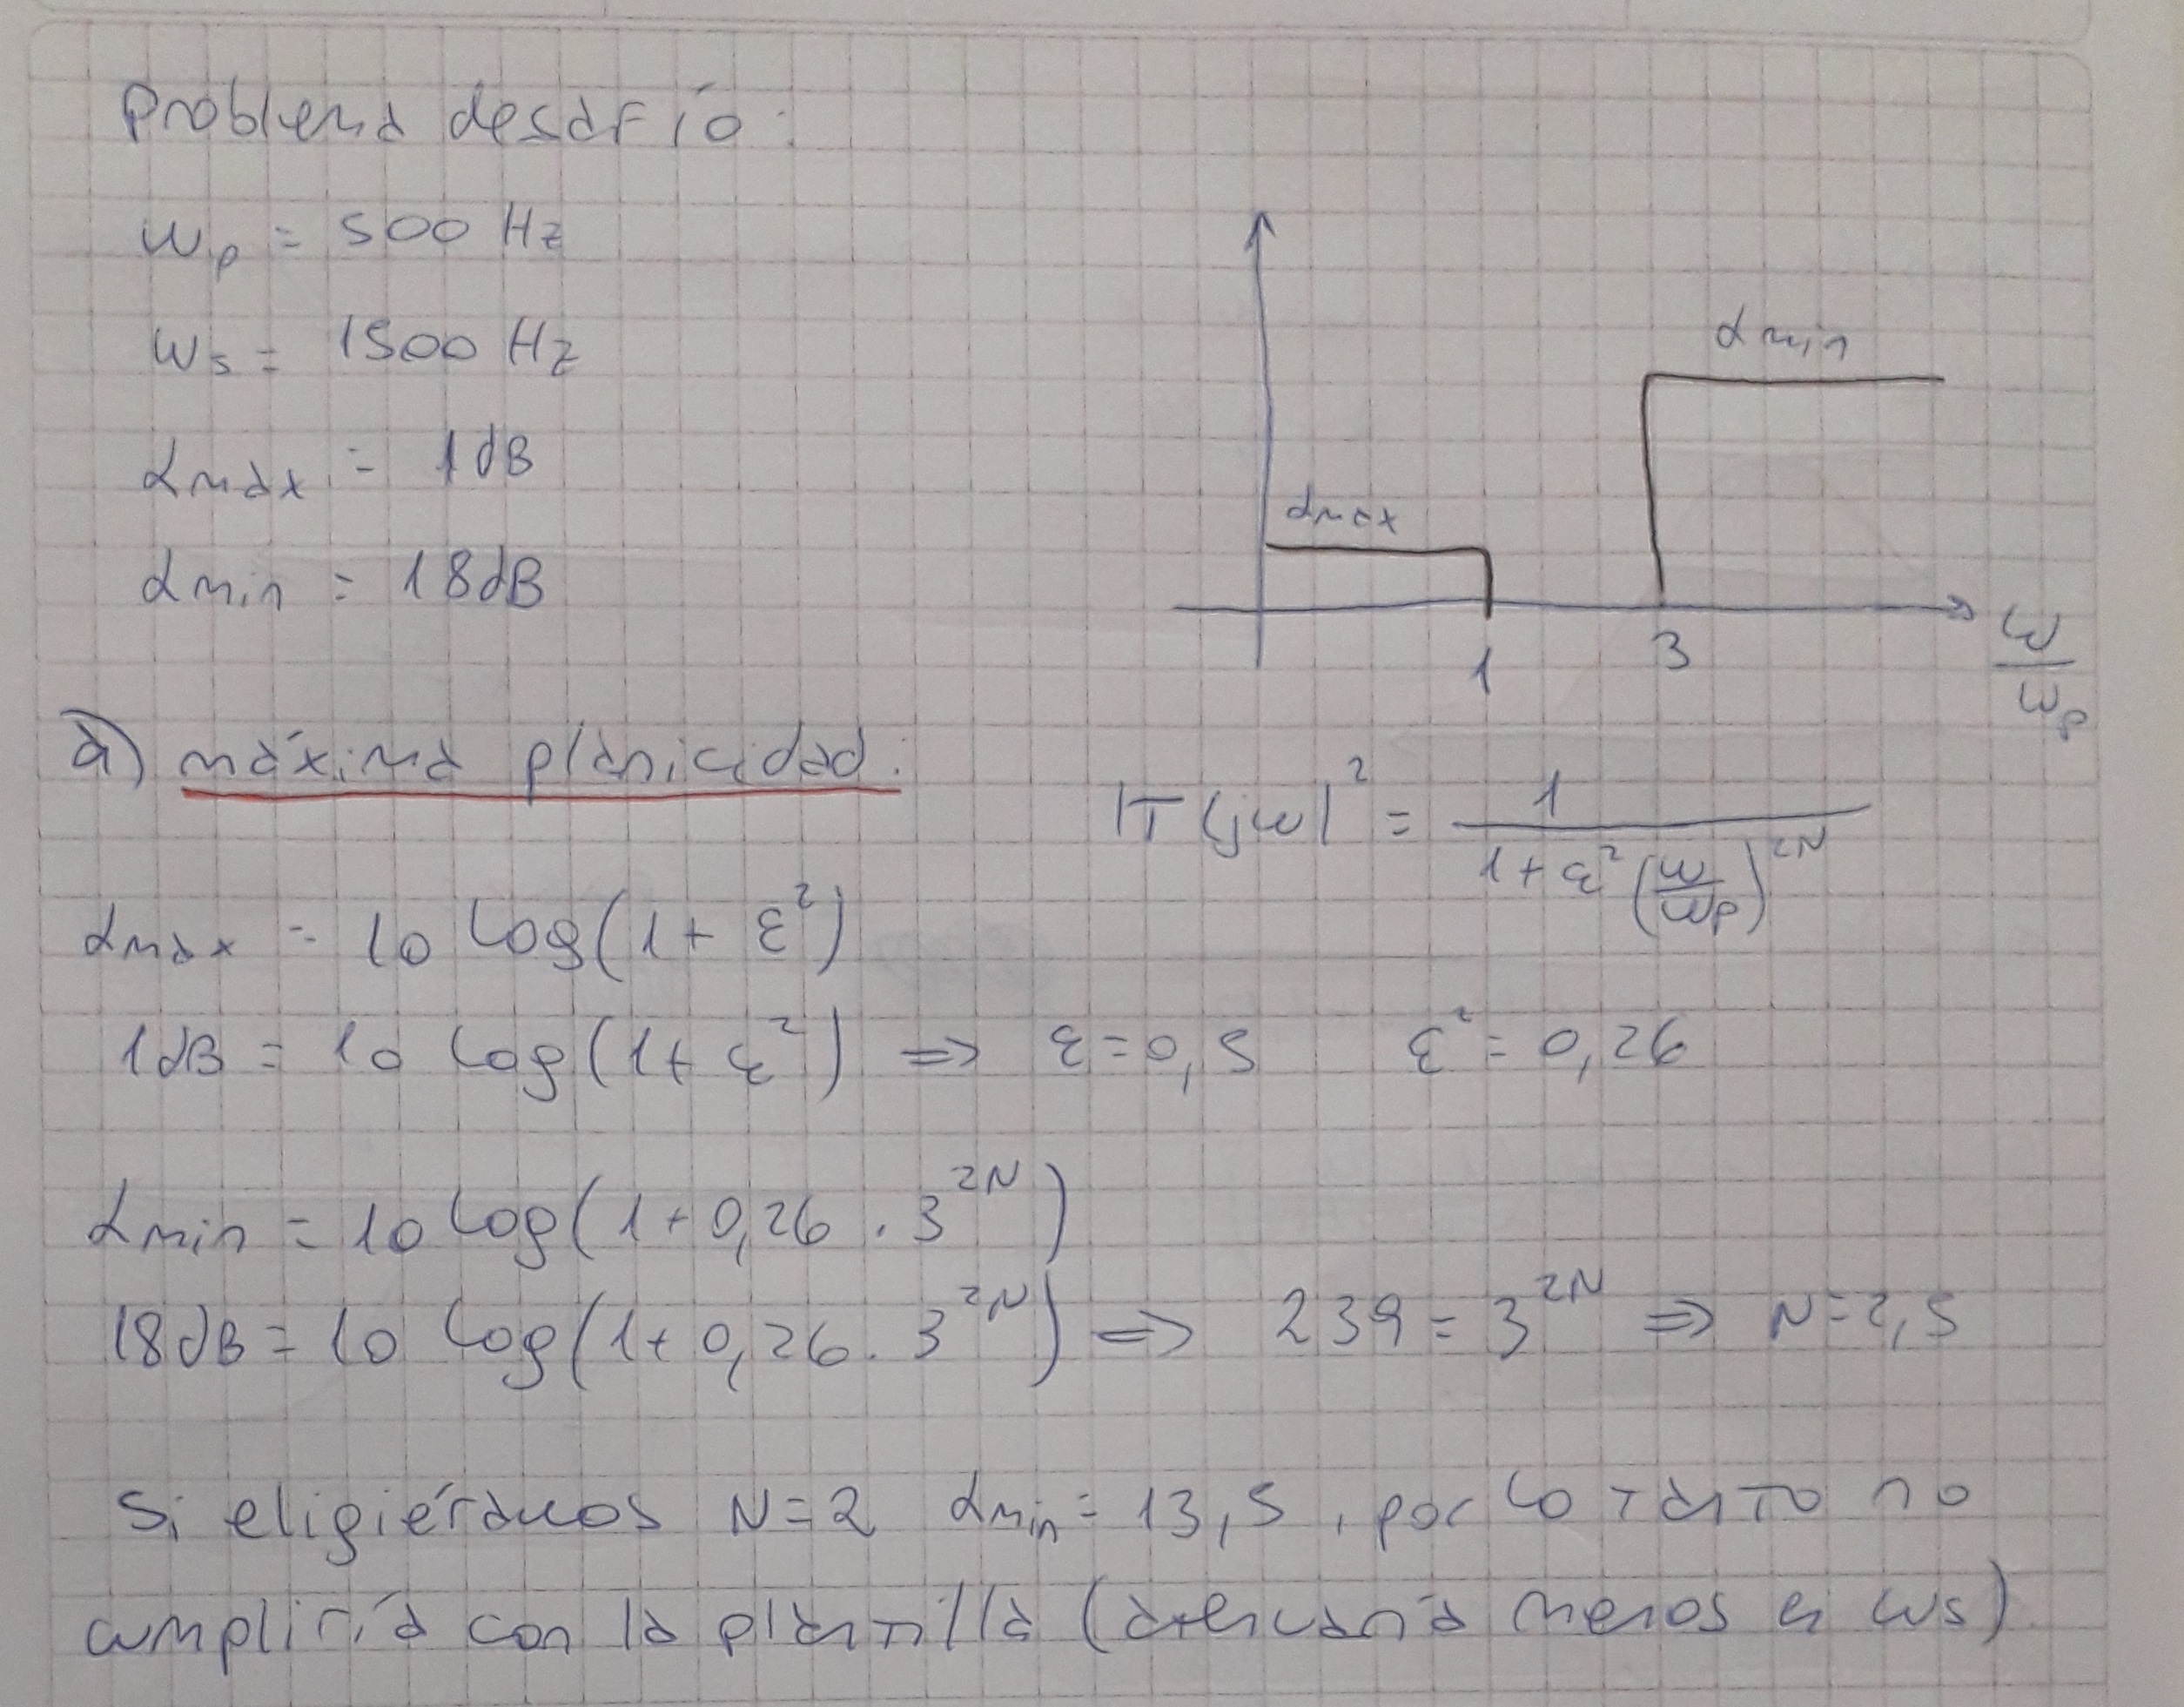 Problema desafío:
ωp = 500 Hz
ωs = 1500 Hz
αmáx = 1dB
αmin = 18dB
αmin
αmáx
1 3 ω/ωp
a) máxima planicidad:
|T(jω)|² = 1 / (1 + ε² (ω/ωp)^2N)
αmáx = 10 log(1 + ε²)
1dB = 10 log(1 + ε²) ⇒ ε = 0,5 ε² = 0,26
αmin = 10 log(1 + 0,26 . 3^2N)
18dB = 10 log(1 + 0,26 . 3^2N) ⇒ 239 = 3^2N ⇒ N = 2,5
Si eligiéramos N=2 αmin = 13,5 , por lo tanto no
cumpliría con la plantilla (atenuaría menos en ωs)